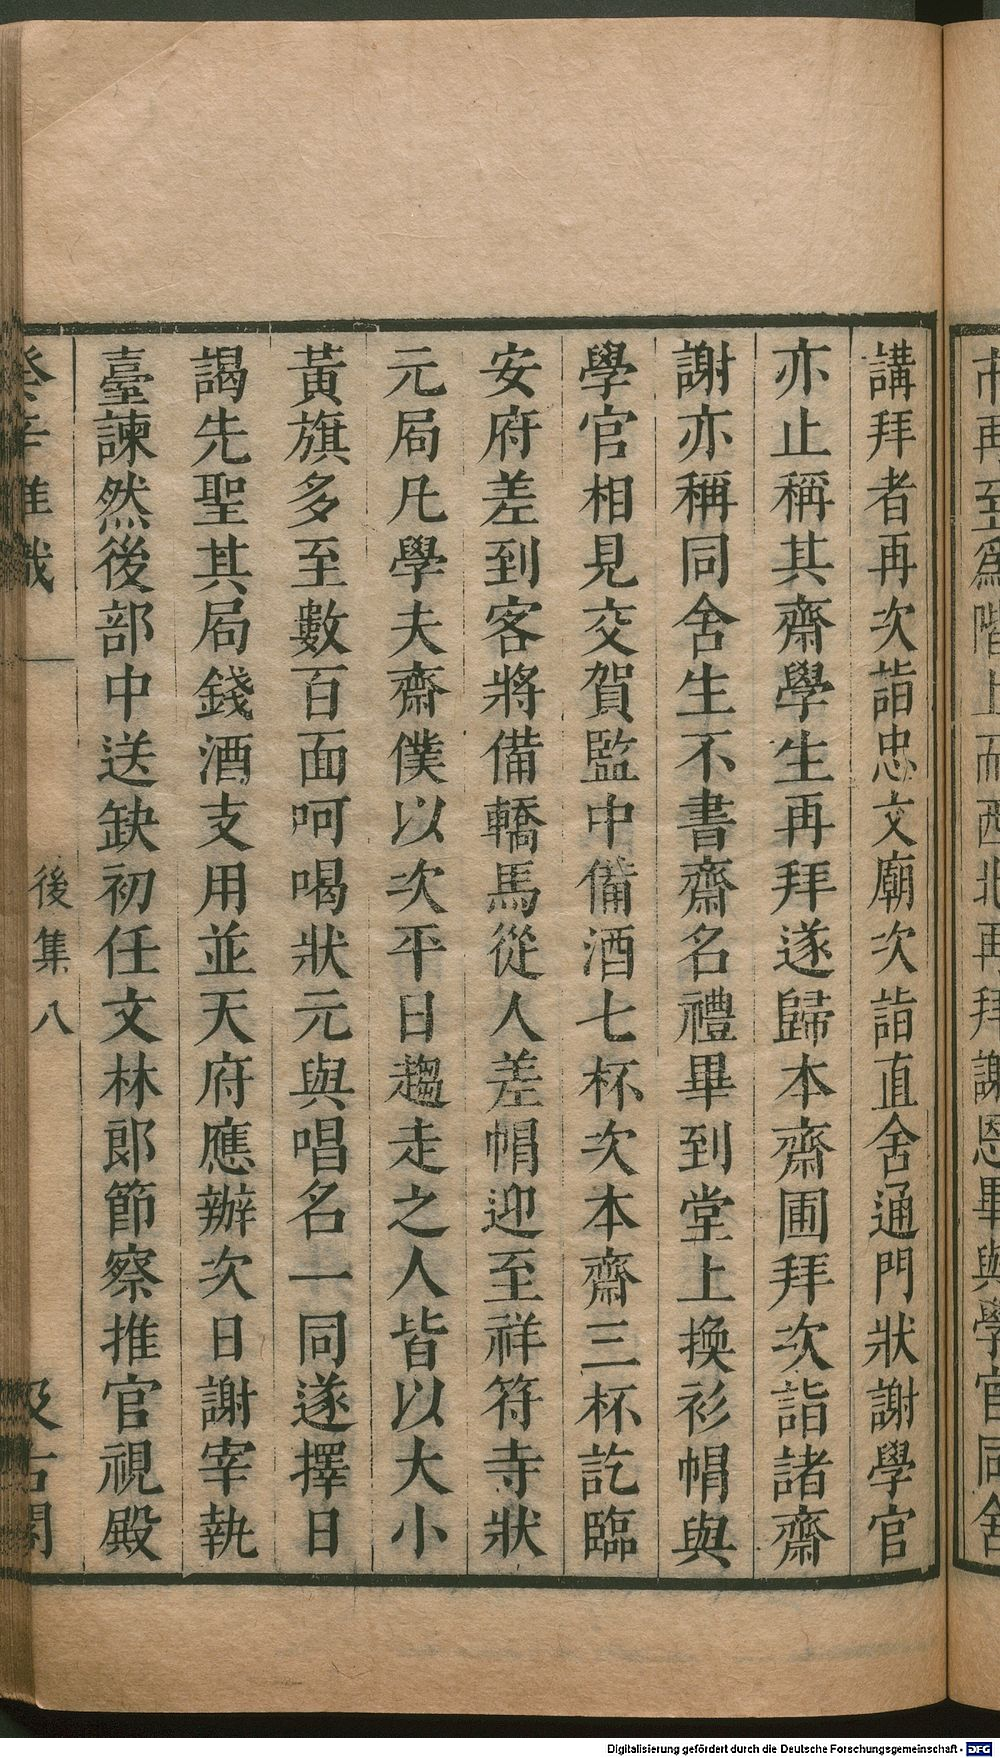 市再到爲階上而西北再拜謝恩畢與學官同舍
講拜者再次詣忠文廟次詣直舍通門狀謝學官
亦止稱其齋學生再拜遂歸本齋團拜次詣諸齋
謝亦稱同舍生不書齋名禮畢到堂上換衫帽與
學官相見交賀監中備酒七杯次本齋三杯訖臨
安府差到客將備轎馬從人差帽迎至祥符寺狀
元局凡學夫齋僕以次平日趨走之人皆以大小
黃旗多至數百面呵喝狀元與唱名一同遂擇日
謁先聖其局錢酒支用並天府應辦次日謝宰執
臺諫然後部中送缺初任文林郎節察推官視殿
癸辛雜識
後集 八
汲古閣
Digitalisierung gefördert durch die Deutsche Forschungsgemeinschaft - DFG